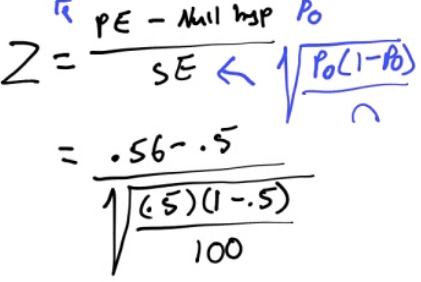 Z = (PE - Null hyp) / SE ← √(P₀(1-P₀) / n) P₀
= (.56 - .5) / √((.5)(1-.5) / 100)